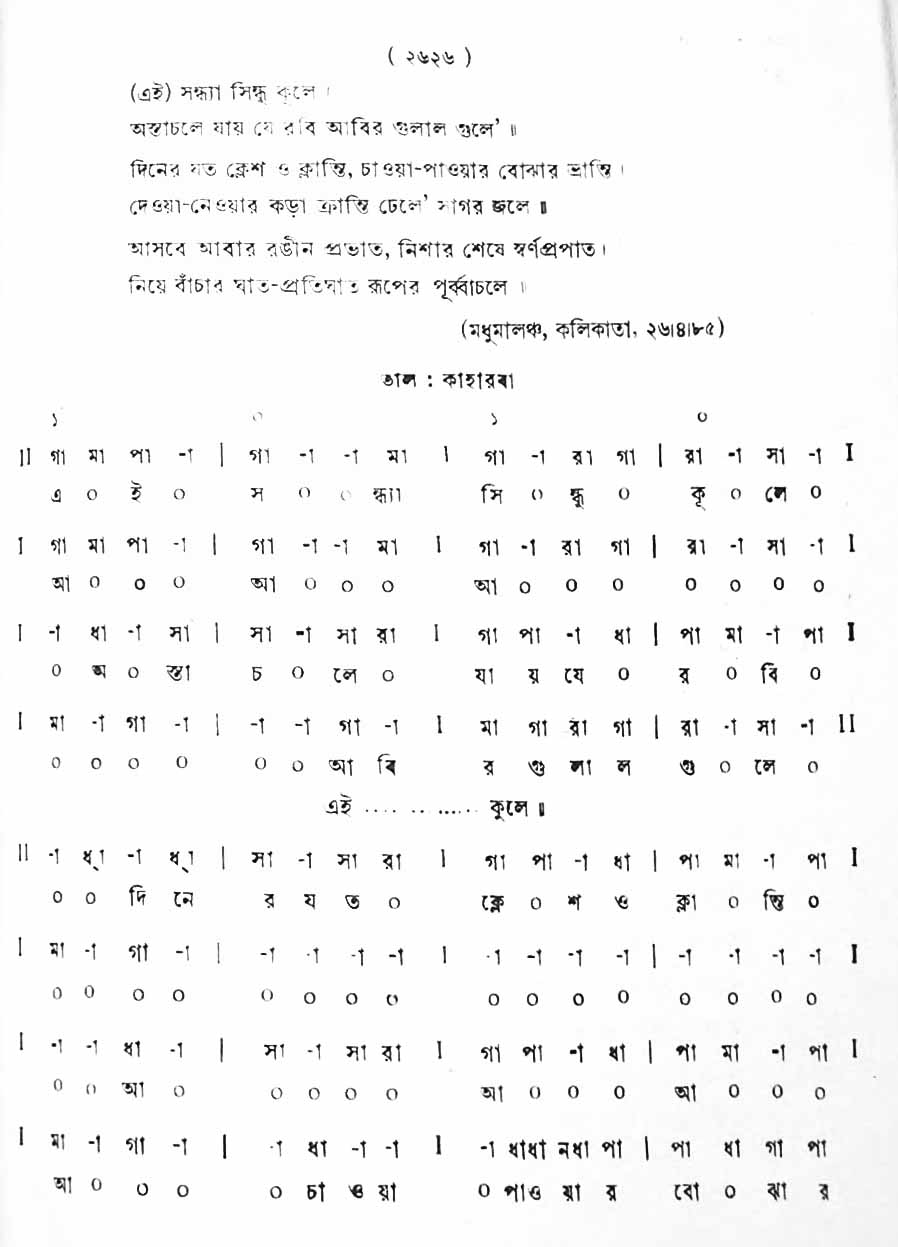 ( ২৬২৬ )
(এই) সন্ধ্যা সিন্ধু কূলে ।
অস্তাচলে যায় যে রবি আবির গুলাল গুলে' ॥
দিনের যত ক্লেশ ও ক্লান্তি, চাওয়া-পাওয়ার বোঝার ভ্রান্তি ।
দেওয়া-নেওয়ার কড়া ক্রান্তি ঢেলে' সাগর জলে ॥
আসবে আবার রঙীন প্রভাত, নিশার শেষে স্বর্ণপ্রপাত।
নিয়ে বাঁচার ঘাত-প্রতিঘাত রূপের পূর্ব্বাচলে ॥
(মধুমালঞ্চ, কলিকাতা, ২৬।৪।৮৫)
তাল : কাহারবা
১ ০ ১ ০
II গা মা পা -া | গা -া -া মা I গা -া রা গা | রা -া সা -া I
এ ০ ই ০ স ০ ০ ন্ধ্যা সি ০ ন্ধু ০ কূ ০ লে ০
I গা মা পা -া | গা -া -া মা I গা -া রা গা | রা -া সা -া I
আ ০ ০ ০ আ ০ ০ ০ আ ০ ০ ০ ০ ০ ০ ০
I -া ধা -া সা | সা -া সা রা I গা পা -া ধা | পা মা -া পা I
০ অ ০ স্তা চ ০ লে ০ যা য় যে ০ র ০ বি ০
I মা -া গা -া | -া -া গা -া I মা গা রা গা | রা -া সা -া II
০ ০ ০ ০ ০ ০ আ বি র গু লা ল গু ০ লে ০
এই .... .. ...... কূলে ॥
II -া ধ্া -া ধ্া | সা -া সা রা I গা পা -া ধা | পা মা -া পা I
০ ০ দি নে র য ত ০ ক্লে ০ শ ও ক্লা ০ ন্তি ০
I মা -া গা -া | -া -া -া -া I -া -া -া -া | -া -া -া -া I
০ ০ ০ ০ ০ ০ ০ ০ ০ ০ ০ ০ ০ ০ ০ ০
I -া -া ধা -া | সা -া সা রা I গা পা -া ধা | পা মা -া পা I
০ ০ আ ০ ০ ০ ০ ০ আ ০ ০ ০ আ ০ ০ ০
I মা -া গা -া | -া ধা -া -া I -া ধাধা নধা পা | পা ধা গা পা
আ ০ ০ ০ ০ চা ও য়া ০ পাও য়া র বো ০ ঝা র